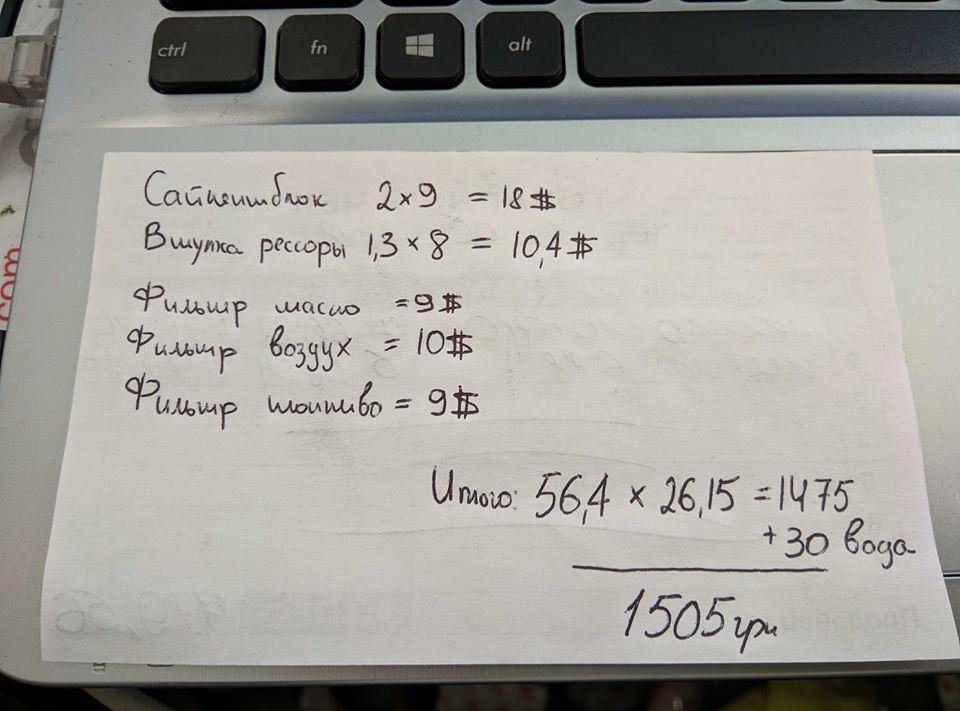 ctrl fn alt
Сайлентблок 2×9 = 18$
Втулка рессоры 1,3×8 = 10,4$
Фильтр масло = 9$
Фильтр воздух = 10$
Фильтр топливо = 9$
Итого: 56,4 × 26,15 = 1475
+30 вода
1505 грн
com